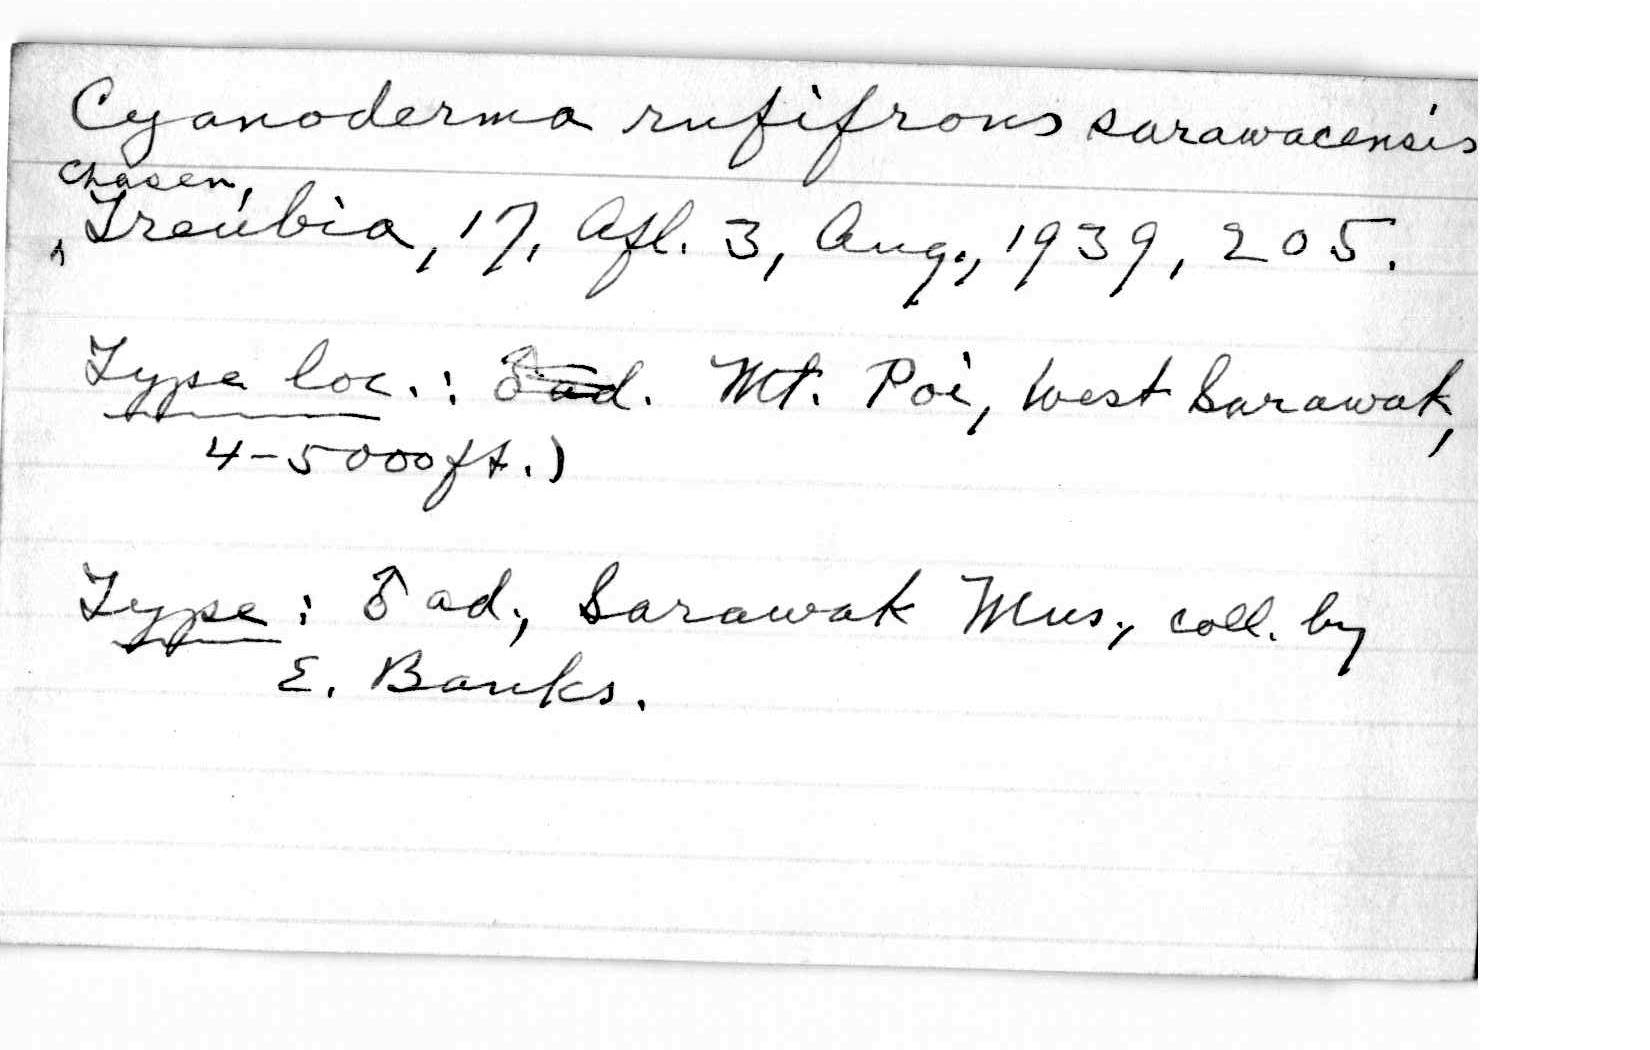 Cyanoderma rufifrons sarawacensis
Chasen,
^ Treubia, 17, Afl. 3, Aug., 1939, 205.
Type loc.: ♂ ad. Mt. Poi, West Sarawak,
4-5000ft.)
Type: ♂ ad., Sarawak Mus., coll. by
E. Banks.